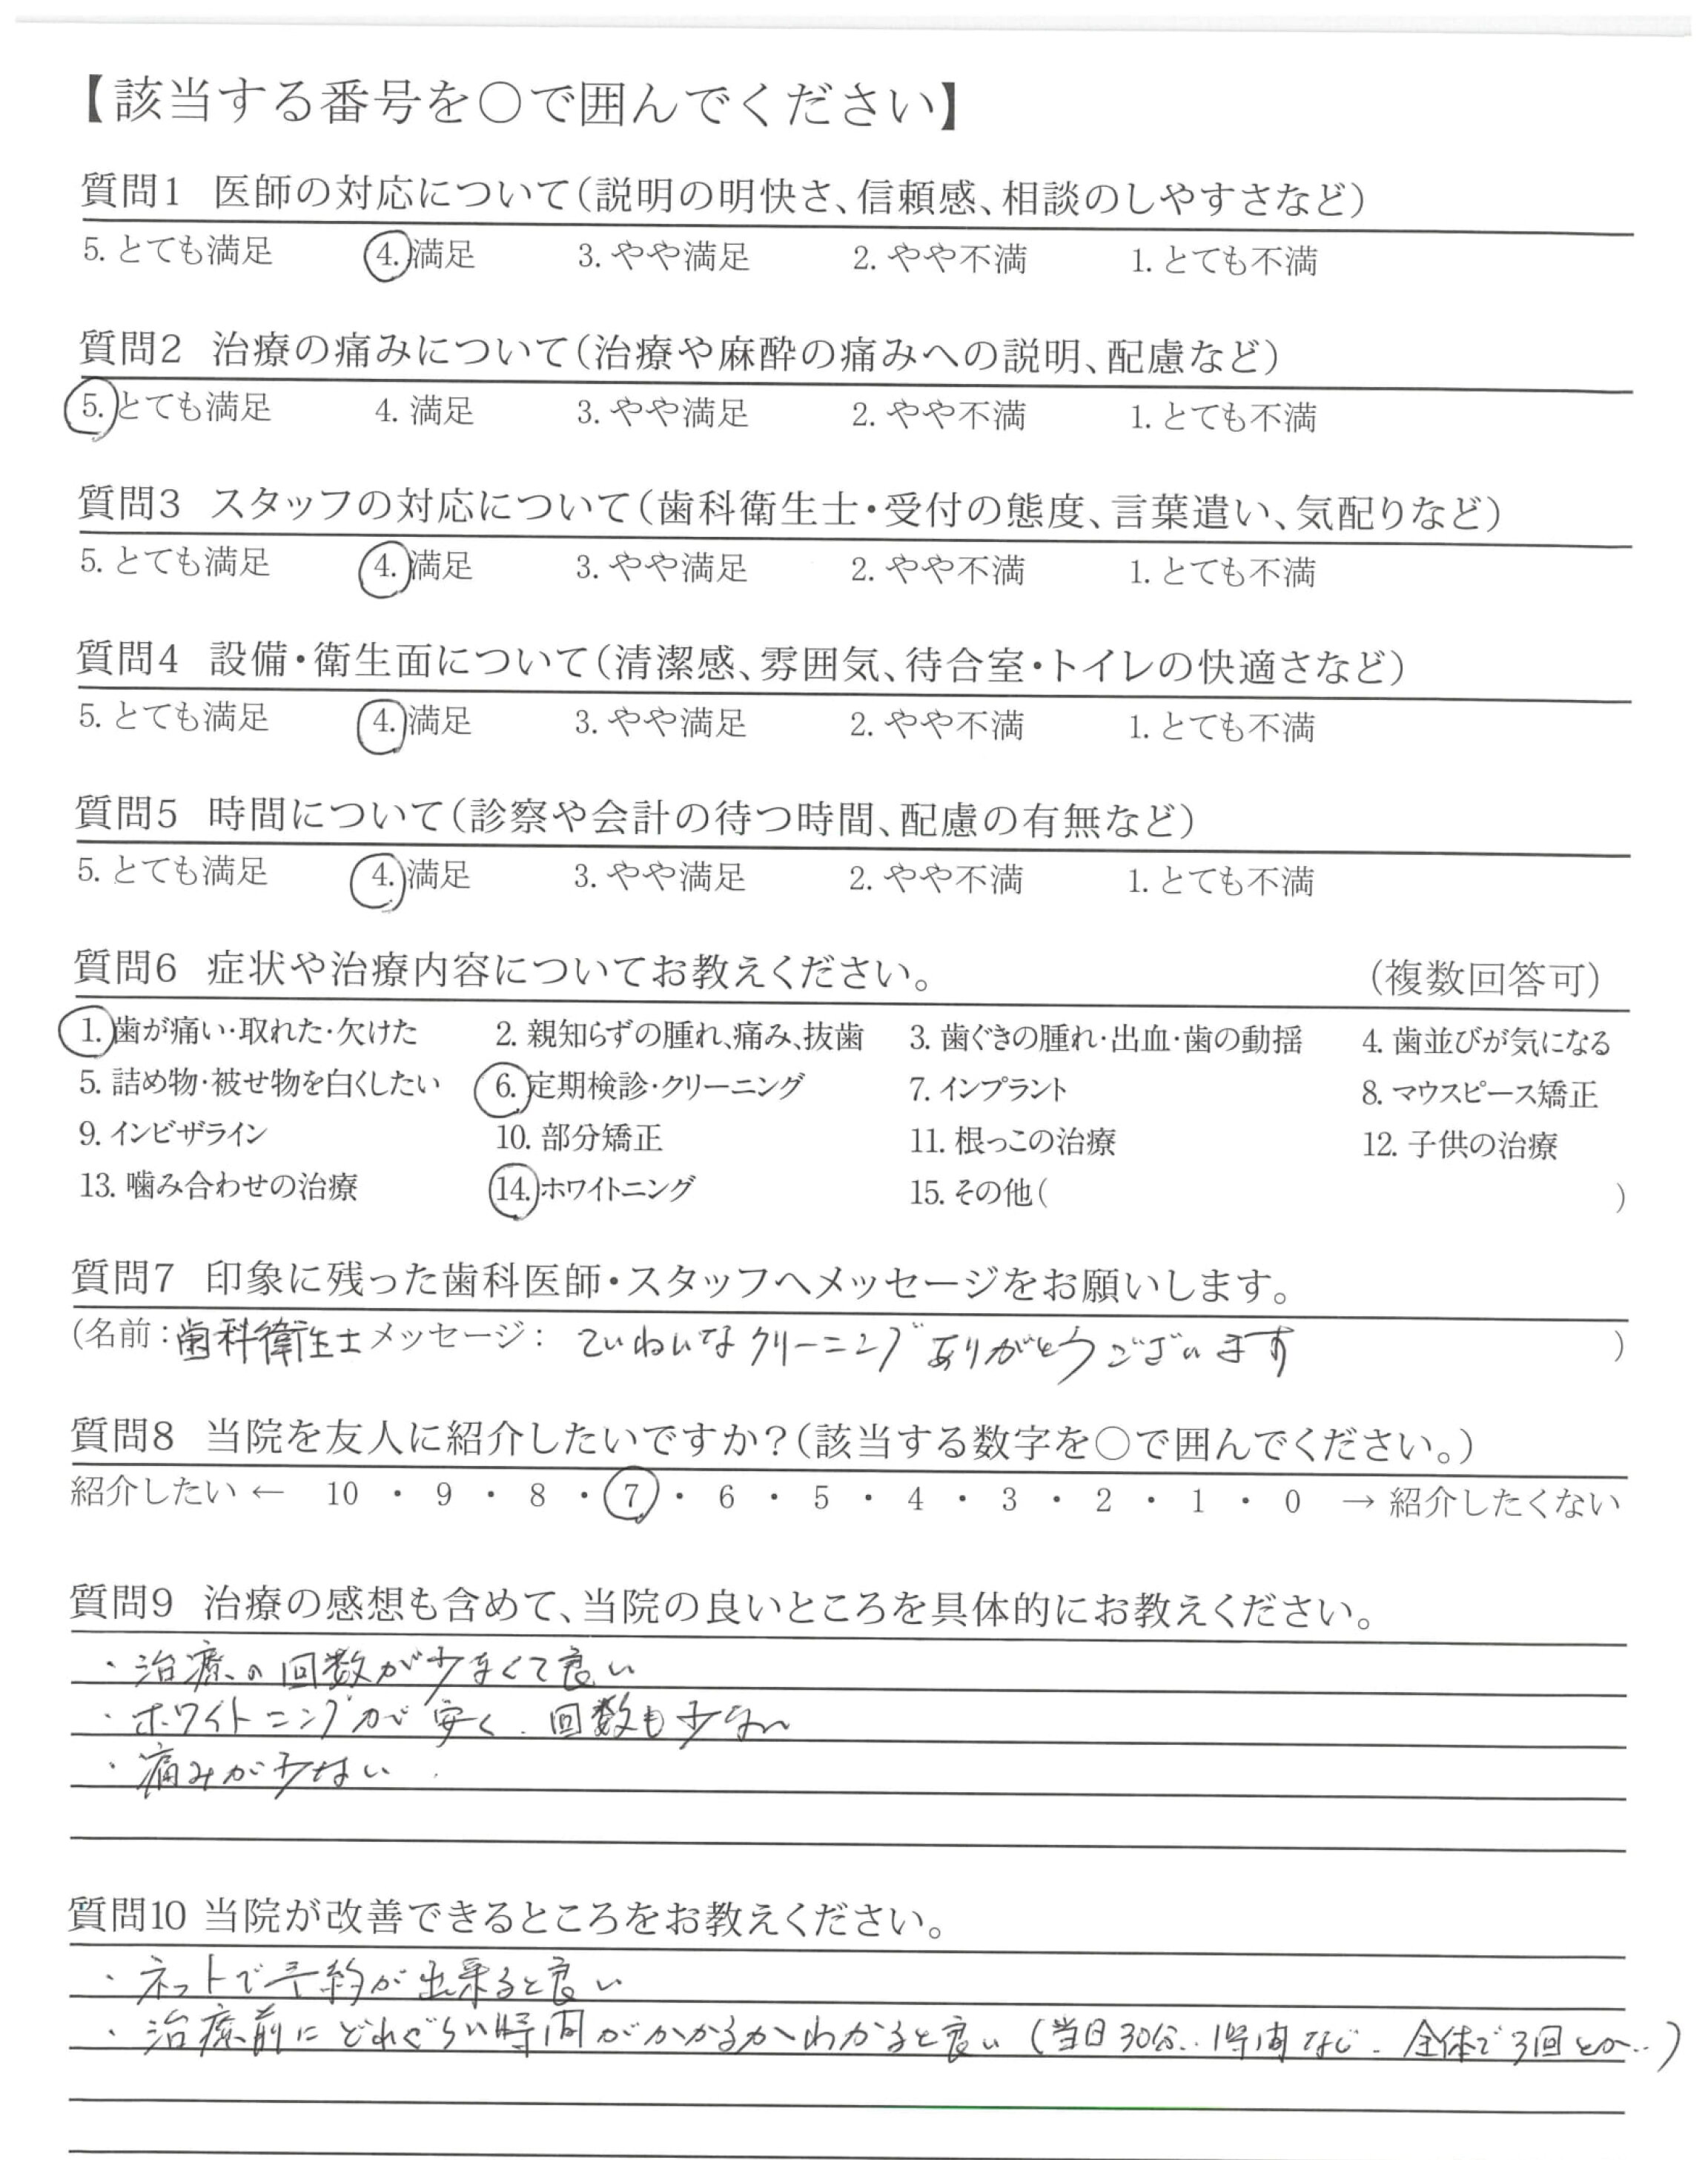 【該当する番号を○で囲んでください】
質問1 医師の対応について(説明の明快さ、信頼感、相談のしやすさなど)
5. とても満足 4. 満足 3. やや満足 2. やや不満 1. とても不満
質問2 治療の痛みについて(治療や麻酔の痛みへの説明、配慮など)
5. とても満足 4. 満足 3. やや満足 2. やや不満 1. とても不満
質問3 スタッフの対応について(歯科衛生士・受付の態度、言葉遣い、気配りなど)
5. とても満足 4. 満足 3. やや満足 2. やや不満 1. とても不満
質問4 設備・衛生面について(清潔感、雰囲気、待合室・トイレの快適さなど)
5. とても満足 4. 満足 3. やや満足 2. やや不満 1. とても不満
質問5 時間について(診察や会計の待つ時間、配慮の有無など)
5. とても満足 4. 満足 3. やや満足 2. やや不満 1. とても不満
質問6 症状や治療内容についてお教えください。 (複数回答可)
1. 歯が痛い・取れた・欠けた 2. 親知らずの腫れ、痛み、抜歯 3. 歯ぐきの腫れ・出血・歯の動揺 4. 歯並びが気になる
5. 詰め物・被せ物を白くしたい 6. 定期検診・クリーニング 7. インプラント 8. マウスピース矯正
9. インビザライン 10. 部分矯正 11. 根っこの治療 12. 子供の治療
13. 噛み合わせの治療 14. ホワイトニング 15. その他( )
質問7 印象に残った歯科医師・スタッフへメッセージをお願いします。
(名前:歯科衛生士 メッセージ: ていねいなクリーニングありがとうございます )
質問8 当院を友人に紹介したいですか?(該当する数字を○で囲んでください。)
紹介したい ← 10 ・ 9 ・ 8 ・ 7 ・ 6 ・ 5 ・ 4 ・ 3 ・ 2 ・ 1 ・ 0 → 紹介したくない
質問9 治療の感想も含めて、当院の良いところを具体的にお教えください。
・治療の回数が少なくて良い
・ホワイトニングが安く、回数も少ない
・痛みが少ない
質問10 当院が改善できるところをお教えください。
・ネットで予約が出来ると良い
・治療前にどれぐらい時間がかかるかわかると良い(当日30分‥1時間など、全体で3回とか‥)